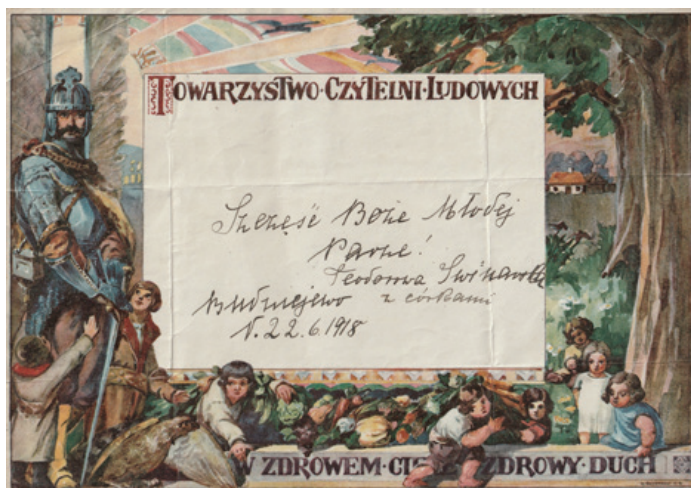 TOWARZYSTWO·CZYTELNI·LUDOWYCH
Szczęść Boże Młodej
Parze!
Teodorowa
z córkami
d. 22.6.1918
W ZDROWEM·CIELE ZDROWY·DUCH